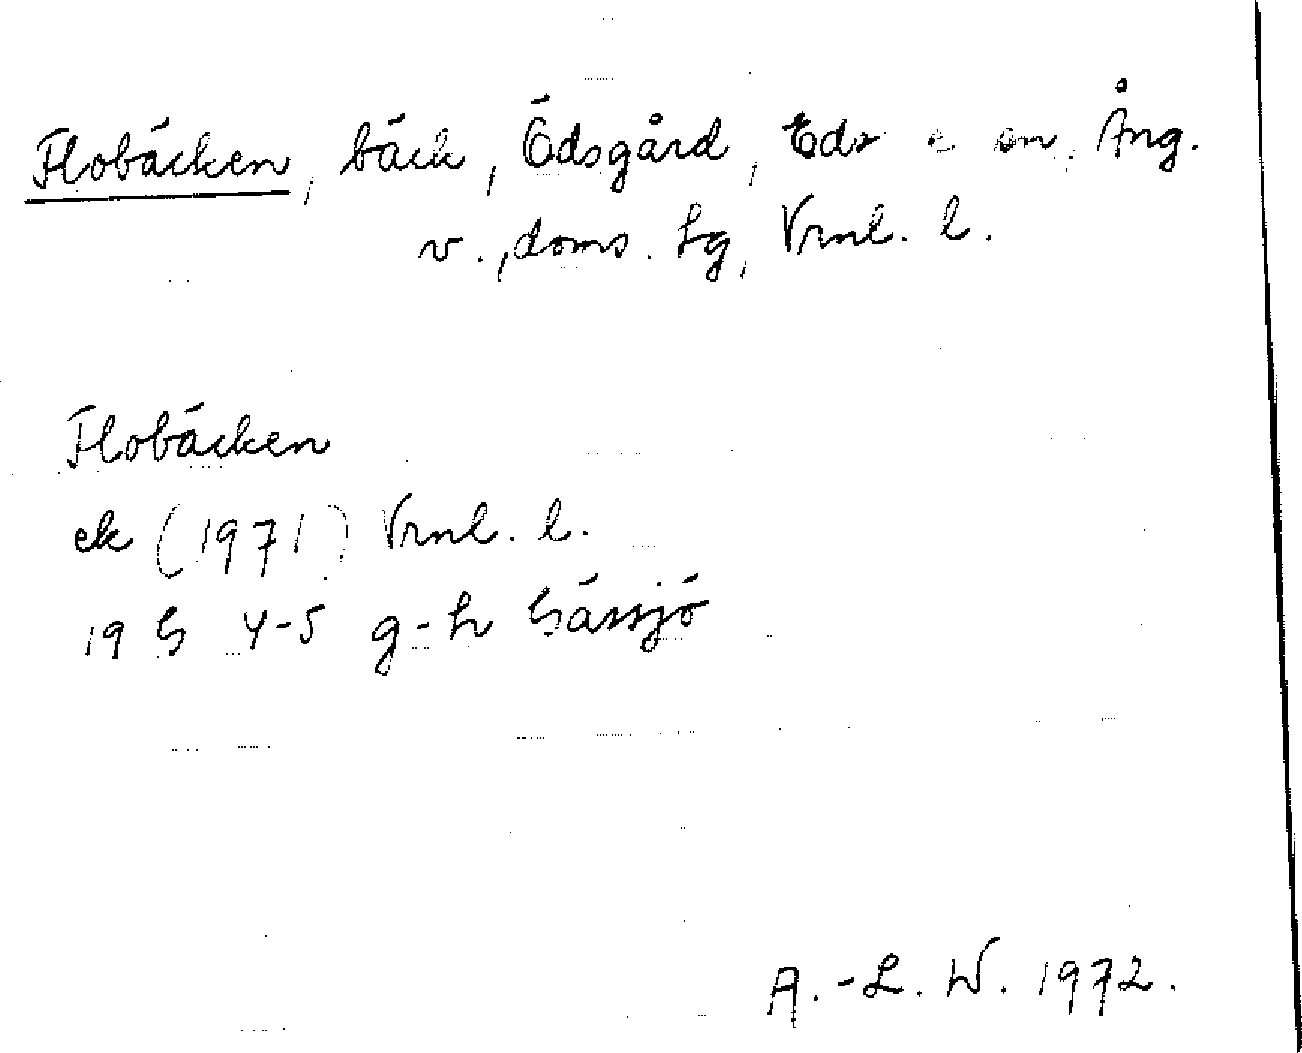 Flobäcken, bäck, Ödsgård, Eds sn, Ång.
v., doms. hg, Vrnl. l.
Flobäcken
ek (1971) Vrnl. l.
19 G 4-5 g-h Gåssjö
A.-L. W. 1972.